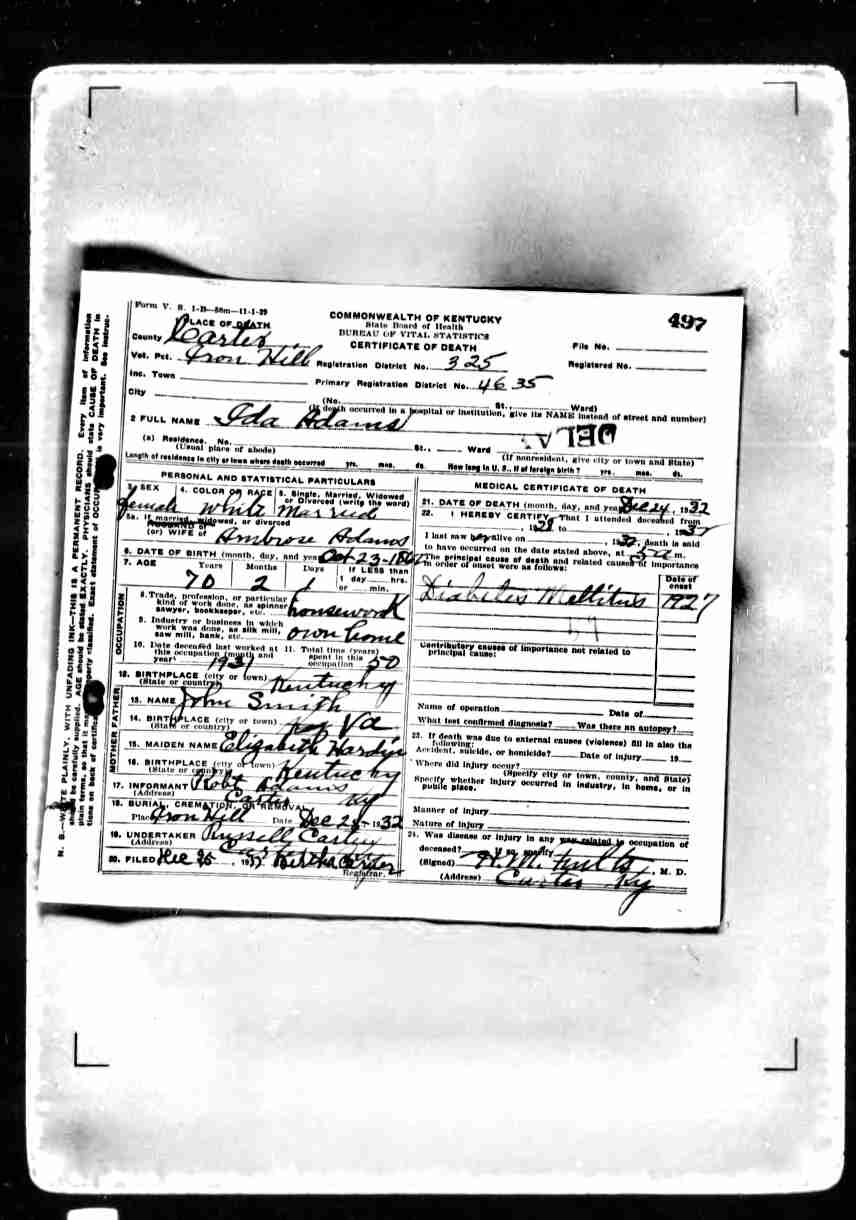 Form V. S. 1-B—50m—11-1-29
COMMONWEALTH OF KENTUCKY
State Board of Health
BUREAU OF VITAL STATISTICS
CERTIFICATE OF DEATH
497
PLACE OF DEATH
County Carter
File No.
Vot. Pct. Iron Hill Registration District No. 325
Registered No.
Inc. Town Primary Registration District No. 4635
City (No. St., Ward)
(If death occurred in a hospital or institution, give its NAME instead of street and number)
2 FULL NAME Ida Adams
(a) Residence. No. St., Ward
(Usual place of abode) (If nonresident, give city or town and State)
Length of residence in city or town where death occurred yrs. mos. ds. How long in U. S., if of foreign birth? yrs. mos. ds.
PERSONAL AND STATISTICAL PARTICULARS
3. SEX 4. COLOR OR RACE 5. Single, Married, Widowed or Divorced (write the word)
female white married
5a. If married, widowed, or divorced
HUSBAND of
(or) WIFE of Ambrose Adams
6. DATE OF BIRTH (month, day, and year) Oct-23-
7. AGE Years Months Days If LESS than
1 day hrs.
70 2 1 or min.
OCCUPATION
8. Trade, profession, or particular
kind of work done, as spinner
sawyer, bookkeeper, etc. housework
9. Industry or business in which
work was done, as silk mill,
saw mill, bank, etc. own home
10. Date deceased last worked at 11. Total time (years)
this occupation (month and spent in this
year) 1931 occupation 50
12. BIRTHPLACE (city or town)
(State or country) Kentucky
FATHER
13. NAME John Smith
14. BIRTHPLACE (city or town)
(State or country) Va
MOTHER
15. MAIDEN NAME Elizabeth Hardin
16. BIRTHPLACE (city or town)
(State or country) Kentucky
17. INFORMANT Robt Adams
(Address) Carter Ky
18. BURIAL, CREMATION, OR REMOVAL
Place Iron Hill Date Dec 1932
19. UNDERTAKER Russell
(Address)
20. FILED Dec , 19 Bertha Carter
Registrar.
MEDICAL CERTIFICATE OF DEATH
21. DATE OF DEATH (month, day, and year) Dec 24, 1932
22. I HEREBY CERTIFY, That I attended deceased from
, 19 to , 1932
I last saw her alive on , 1932, death is said
to have occurred on the date stated above, at 5 a m.
The principal cause of death and related causes of importance
in order of onset were as follows:
Date of onset
Diabetes Mellitus 1927
Contributory causes of importance not related to
principal cause:
Name of operation Date of
What test confirmed diagnosis? Was there an autopsy?
23. If death was due to external causes (violence) fill in also the
following:
Accident, suicide, or homicide? Date of injury 19
Where did injury occur?
(Specify city or town, county, and State)
Specify whether injury occurred in industry, in home, or in
public place.
Manner of injury
Nature of injury
24. Was disease or injury in any way related to occupation of
deceased? If so, specify
(Signed) M. D.
(Address) Carter Ky